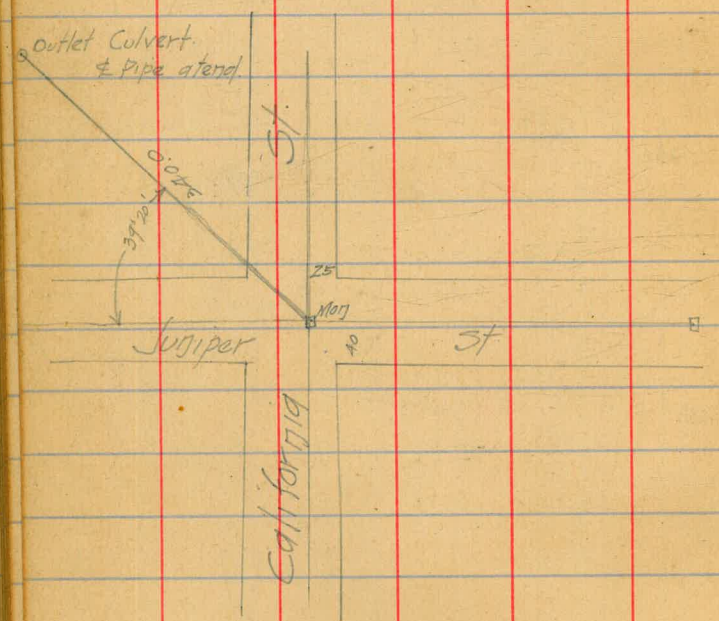 Outlet Culvert
& Pipe at end.
St
340.0
39°20'
25
Mon
Juniper St
40
California